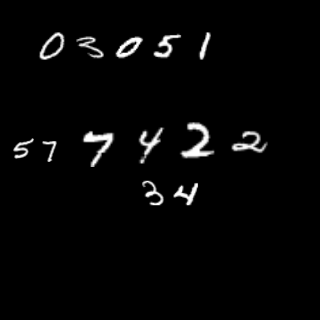 03051
577422
34